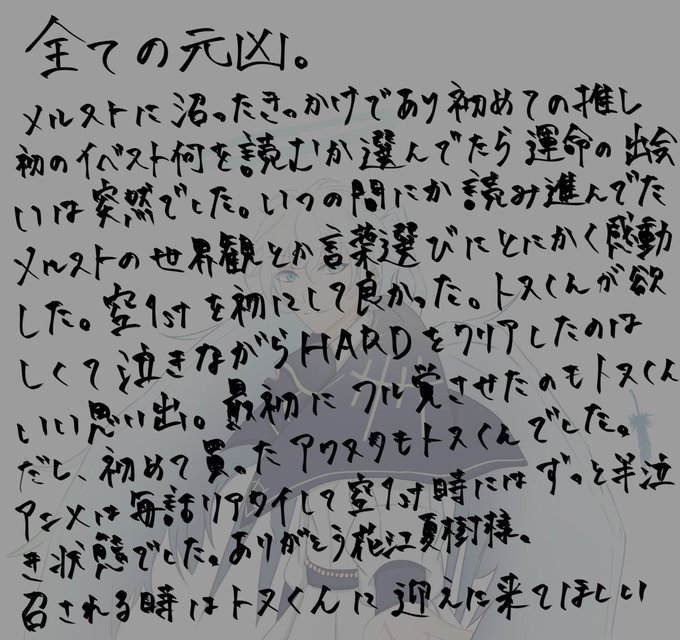 全ての元凶。
メルストに沼ったきっかけであり初めての推し
初のイベスト何を読むか選んでたら運命の出会
いは突然でした。いつの間にか読み進んでた
メルストの世界観とか言葉選びにとにかく感動
した。空1stを初にして良かった。トヌくんが欲
しくて泣きながらHARDをクリアしたのは
いい思い出。最初にフル覚させたのもトヌくん
だし、初めて買ったアクスタもトヌくんでした。
アニメは毎話リアタイして空1st時にはずっと半泣
き状態でした。ありがとう花江夏樹様。
召される時はトヌくんに迎えに来てほしい